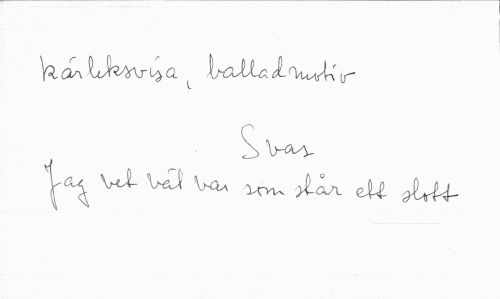 kärleksvisa, balladmotiv
Svar
Jag vet väl var som står ett slott